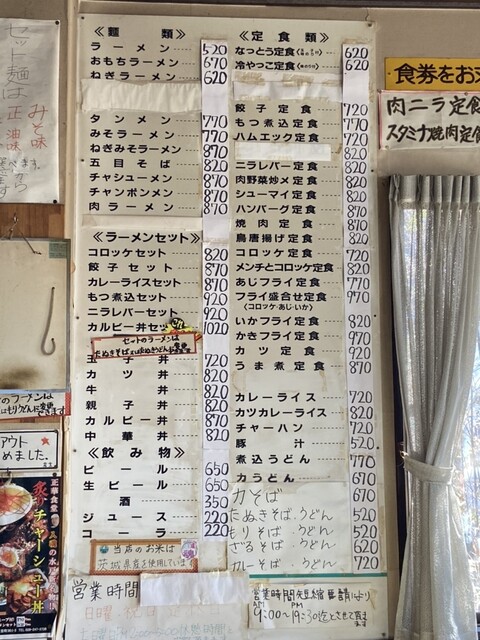 セット麺は
正油
みそ味
《麺類》
ラーメン 520
おもちラーメン 670
ねぎラーメン 620
タンメン 770
みそラーメン 770
ねぎみそラーメン 870
五目そば 820
チャシューメン 870
チャンポンメン 870
肉ラーメン 870
《ラーメンセット》
コロッケセット 820
餃子セット 870
カレーライスセット 870
もつ煮込セット 920
ニラレバーセット 920
カルビー丼セット 1020
セットのラーメンは
玉子丼 720
カツ丼 820
牛丼 820
親子丼 820
カルビー丼 870
中華丼 820
《飲み物》
ビール 650
生ビール 650
酒 350
ジュース 220
コーラ 220
当店のお米は
茨城県産を使用しています
営業時間
日曜
《定食類》
なっとう定食 620
冷やっこ定食 620
餃子定食 720
もつ煮込定食 770
ハムエッグ定食 720
820
ニラレバー定食 820
肉野菜炒メ定食 820
シューマイ定食 820
ハンバーグ定食 870
焼肉定食 870
鳥唐揚げ定食 820
コロッケ定食 720
メンチとコロッケ定食 820
あじフライ定食 770
フライ盛合せ定食 970
(コロッケ・あじ・いか)
いかフライ定食 820
かきフライ定食 970
カツ定食 920
うま煮定食 870
カレーライス 720
カツカレーライス 820
チャーハン 720
豚汁 520
煮込うどん 770
力うどん 670
力そば 670
たぬきそば.うどん 520
もりそば.うどん 520
ざるそば.うどん 620
カレーそば.うどん 720
営業時間短縮要請により
AM PM
9:00〜19:30迄とさせて頂きます
食券をお
肉ニラ定食
スタミナ焼肉定食
のラーメンは
アウト
めました。
正華食堂
炙りチャーシュー丼